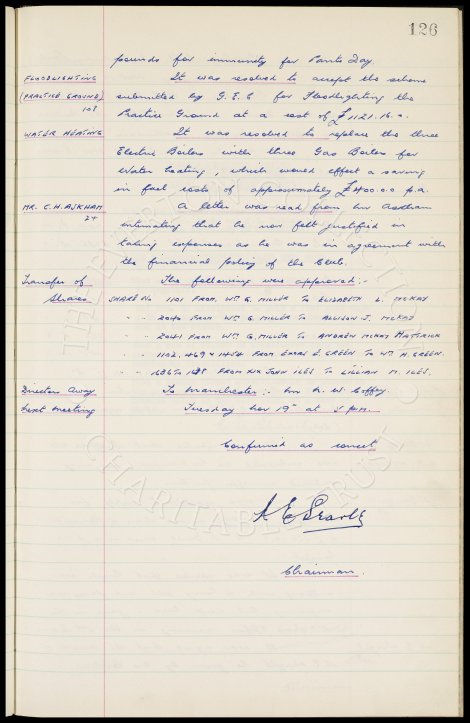 126
pounds for immunity for Pants day
FLOODLIGHTING It was resolved to accept the scheme
(PRACTICE GROUND) submitted by G.E.C for Floodlighting the
108 Practice Ground at a cost of £1121.16.0.
WATER HEATING It was resolved to replace the three
Electric Boilers with three Gas Boilers for
Water heating, which would effect a saving
in fuel costs of approximately £400.00 p.a.
MR. C.H. ASKHAM A letter was read from Mr Askham
24 intimating that he now felt justified in
taking expenses as he was in agreement with
the financial policy of the Club.
Transfer of The following were approved:-
Shares SHARE No 1101 FROM. Wm G. MILLER TO ELIZABETH L. McKAY
" " 2040 FROM Wm G. MILLER TO ALLISON J. McKAY
" " 2041 FROM Wm G. MILLER TO ANDREW McKAY
" " 1102, 469 & 1454 FROM EXORS E. GREEN TO Wm H. GREEN.
" " 1686 TO 1688 FROM XIX JOHN ILES TO LILLIAN M. ILES.
Directors Away To Manchester:- Mr N. W. Coffey.
Next meeting Tuesday Nov 19th at 5 p.m.
Confirmed as correct
A E Searle
Chairman.
THE EVERTON
CHARITABLE TRUST